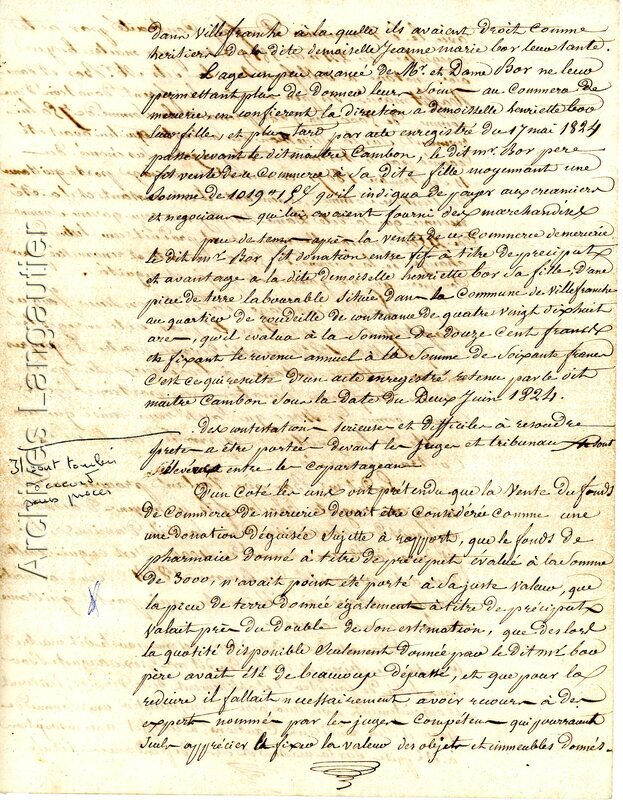 dans Villefranche à la quelle ils avaient droit comme
heritiers de la dite demoiselle Jeanne marie bor leur tante.
L'age un peu avancé de Mr. et Dame Bor ne leur
permettant plus de donner leurs soins au Commerce de
mercerie, en confierent la direction a demoiselle henriette bor
leur fille, et plus tard par acte enregistré du 17 mai 1824
passé devant le dit maitre Cambon, le dit mr. Bor pere
fit vente de ce Commerce à sa dite fille moyennant une
Somme de 1019 qu'il indiqua de payer aux creanciers
et negocians qui lui avaient fourni des marchandises
peu de tems après la vente de ce Commerce de mercerie
le dit mr. Bor fit donation entre vifs à titre de preciput
et avantage à la dite demoiselle henriette bor sa fille, d'une
piece de terre labourable située dans la Commune de Villefranche
au quartier de de contenance de quatre vingt dix huit
ares, qu'il evalua à la Somme de douze cent francs
en fixant le revenu annuel à la Somme de Soixante francs
C'est ce qui resulte d'un acte enregistré retenu par le dit
maitre Cambon sous la date du Deux Juin 1824.
Des contestations serieuses et difficiles à resoudre
pretes a être portées devant les Juges et tribunaux se sont
élevées entre les copartageans
D'un coté les uns ont prétendu que la Vente du fonds
de Commerce de mercerie devait être considérée comme une
une donation déguisée sujette à rapport, que le fonds de
pharmacie donné à titre de préciput évalué à la Somme
de 3000, n'avait point eté porté à sa juste valeur, que
la piece de terre donnée également à titre de préciput
valait près du double de son estimation, que des lors
la quotité disponible seulement donnée par le dit mr. bor
père avait été de beaucoup dépassé, et que pour la
reduire il fallait necessairement avoir recours à des
experts nommés par les juges compétens qui pourraient
seuls apprécier et fixer la valeur des objets et immeubles donnés.
31 vont tomber
d'accord
sans procès
Archives Langauffier